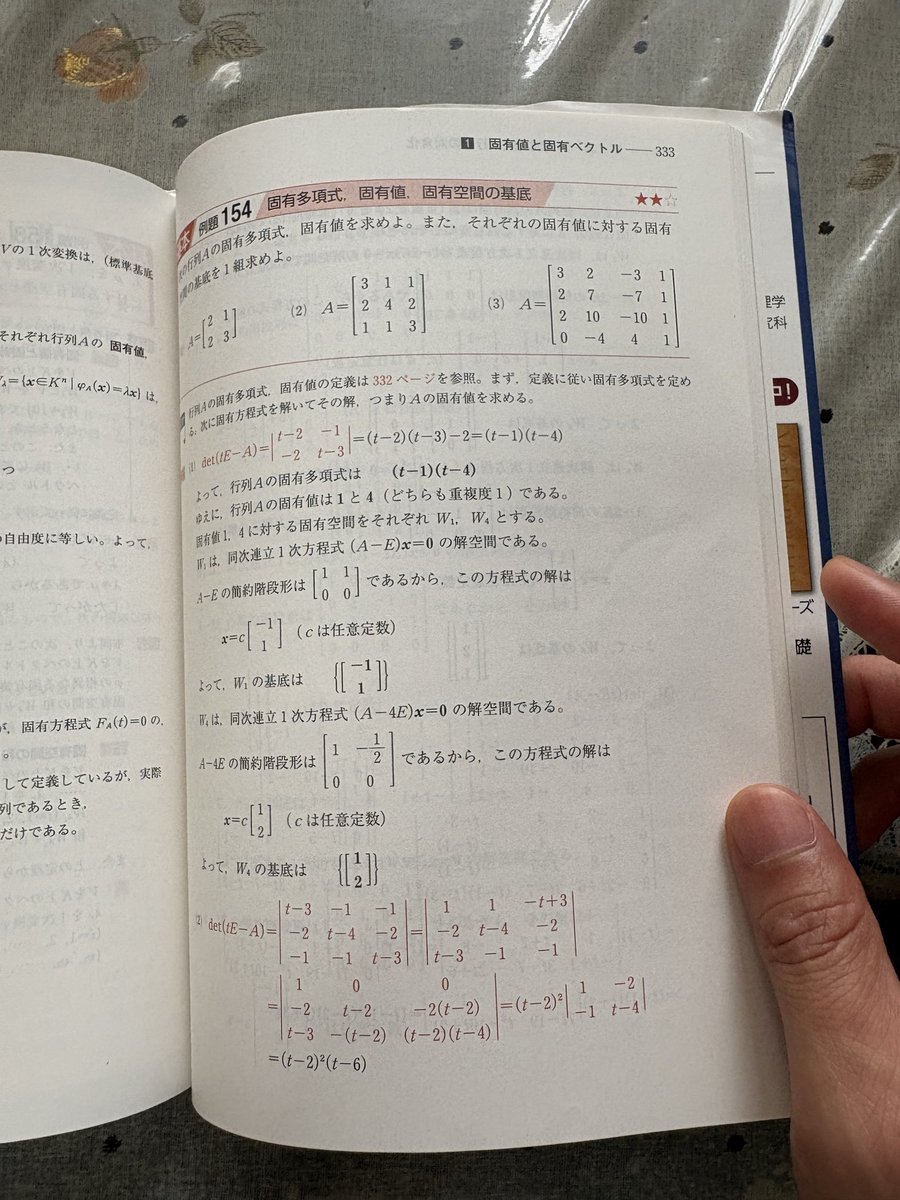 Vの1次変換は，(標準基底
それぞれ行列Aの 固有値，
={x∈Kⁿ | φ_A(x)=λx} は，
つ
自由度に等しい。よって，
固有方程式 F_A(t)=0 の，
。
して定義しているが，実際
列であるとき，
だけである。
1 固有値と固有ベクトル —— 333
例題 154 固有多項式，固有値，固有空間の基底 ★★☆
の行列Aの固有多項式，固有値を求めよ。また，それぞれの固有値に対する固有
の基底を1組求めよ。
A=[2 1; 2 3] (2) A=[3 1 1; 2 4 2; 1 1 3] (3) A=[3 2 −3 1; 2 7 −7 1; 2 10 −10 1; 0 −4 4 1]
行列Aの固有多項式，固有値の定義は 332 ページを参照。まず，定義に従い固有多項式を定め
る。次に固有方程式を解いてその解，つまりAの固有値を求める。
(1) det(tE−A)=|t−2 −1; −2 t−3|=(t−2)(t−3)−2=(t−1)(t−4)
よって，行列Aの固有多項式は (t−1)(t−4)
ゆえに，行列Aの固有値は 1 と 4 (どちらも重複度1) である。
固有値1，4に対する固有空間をそれぞれ W₁，W₄ とする。
W₁は，同次連立1次方程式 (A−E)x=0 の解空間である。
A−E の簡約階段形は [1 1; 0 0] であるから，この方程式の解は
x=c[−1; 1] (c は任意定数)
よって，W₁ の基底は {[−1; 1]}
W₄は，同次連立1次方程式 (A−4E)x=0 の解空間である。
A−4E の簡約階段形は [1 −1/2; 0 0] であるから，この方程式の解は
x=c[1; 2] (c は任意定数)
よって，W₄ の基底は {[1; 2]}
(2) det(tE−A)=|t−3 −1 −1; −2 t−4 −2; −1 −1 t−3|=|1 1 −t+3; −2 t−4 −2; t−3 −1 −1|
=|1 0 0; −2 t−2 −2(t−2); t−3 −(t−2) (t−2)(t−4)|=(t−2)²|1 −2; −1 t−4|
=(t−2)²(t−6)
理学
究科
ロ!
ーズ
礎